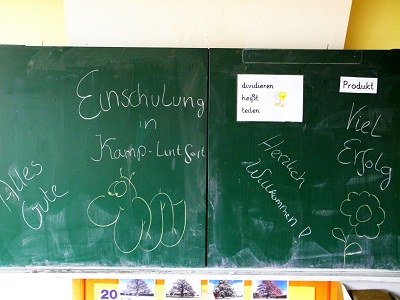 Einschulung
in
Kamp-Lintfort
Alles
Gute
dividieren
heißt
teilen
Produkt
Viel
Erfolg
Herzlich
Willkommen!
20